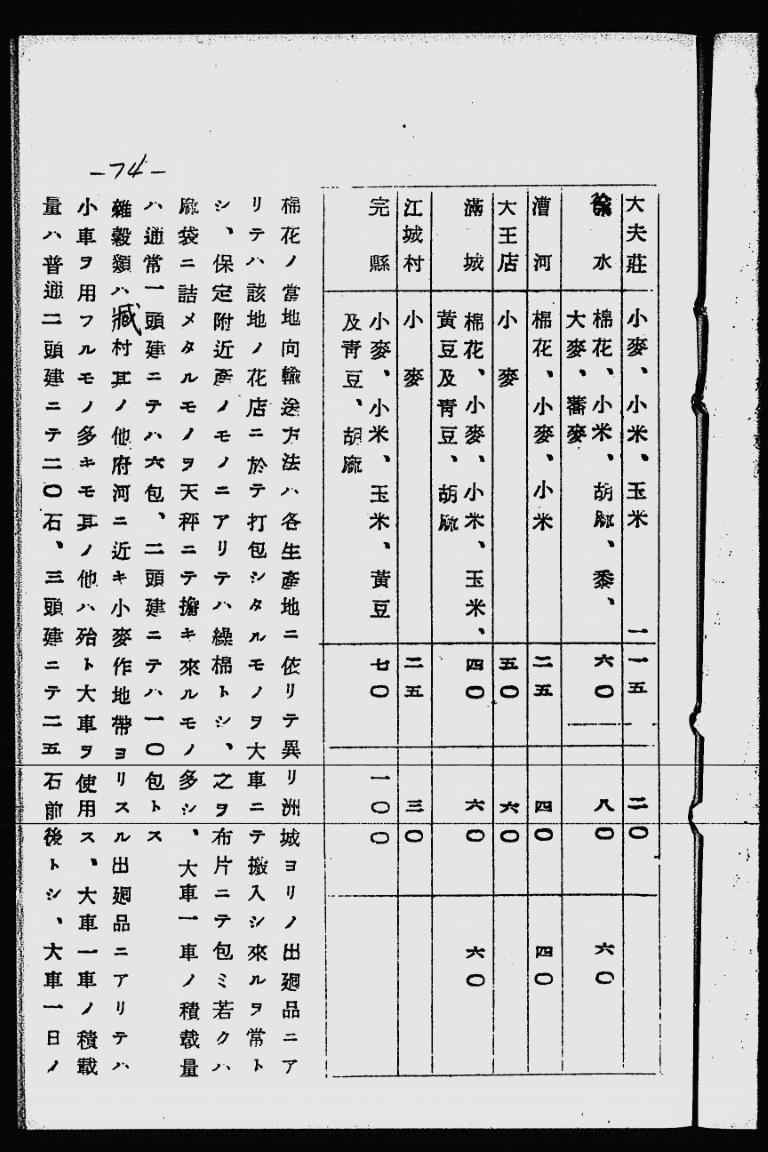 大夫莊 小麥、小米、玉米 一一五 二〇
徐水 棉花、小米、胡麻、黍、 六〇 八〇 六〇
大麥、蕎麥
漕河 棉花、小麥、小米 二五 四〇 四〇
大王店 小麥 五〇 六〇
滿城 棉花、小麥、小米、玉米、 四〇 六〇 六〇
黃豆及靑豆、胡麻
江城村 小麥 二五 三〇
完縣 小麥、小米、玉米、黃豆 七〇 一〇〇
及靑豆、胡麻
棉花ノ當地向輸送方法ハ各生產地ニ依リテ異リ洲城ヨリノ出廻品ニア
リテハ該地ノ花店ニ於テ打包シタルモノヲ大車ニテ搬入シ來ルヲ常ト
シ、保定附近產ノモノニアリテハ繰棉トシ、之ヲ布片ニテ包ミ若クハ
麻袋ニ詰メタルモノヲ天秤ニテ擔キ來ルモノ多シ、大車一車ノ積載量
ハ通常一頭建ニテハ六包、二頭建ニテハ一〇包トス
雜穀類ハ臧村其ノ他府河ニ近キ小麥作地帶ヨリスル出廻品ニアリテハ
小車ヲ用フルモノ多キモ其ノ他ハ殆ト大車ヲ使用ス、大車一車ノ積載
量ハ普通二頭建ニテ二〇石、三頭建ニテ二五石前後トシ、大車一日ノ
-74-